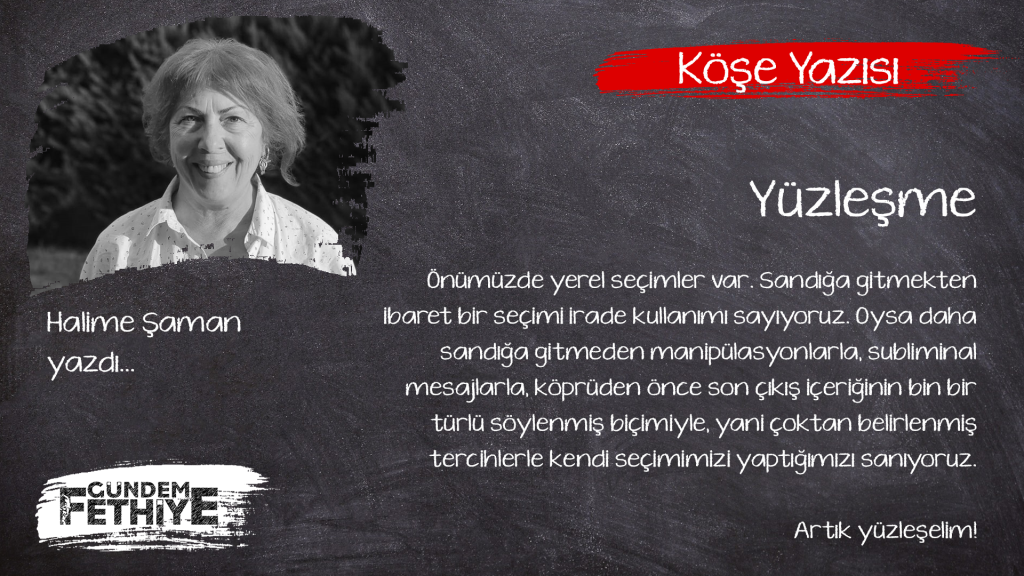 Köşe Yazısı
Yüzleşme
Önümüzde yerel seçimler var. Sandığa gitmekten
ibaret bir seçimi irade kullanımı sayıyoruz. Oysa daha
sandığa gitmeden manipülasyonlarla, subliminal
mesajlarla, köprüden önce son çıkış içeriğinin bin bir
türlü söylenmiş biçimiyle, yani çoktan belirlenmiş
tercihlerle kendi seçimimizi yaptığımızı sanıyoruz.
Artık yüzleşelim!
Halime Şaman
yazdı...
GÜNDEM
FETHİYE